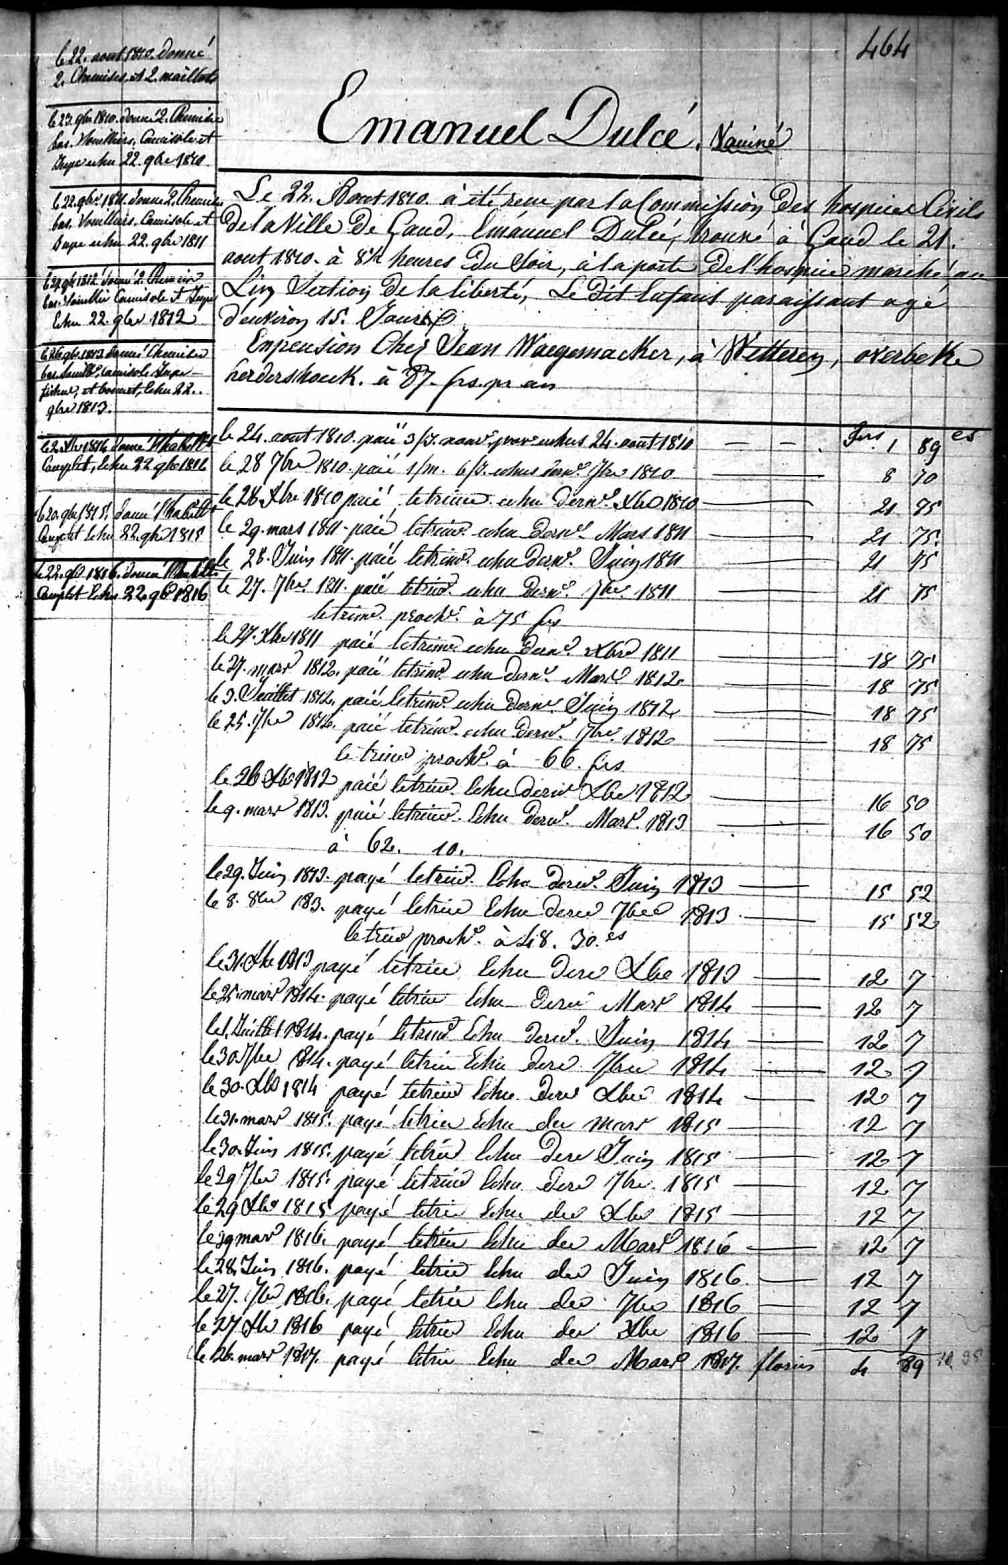 464
Emanuel Dulcé. Vaciné
le 22. aout 1810. donné
2. Chemises, et 2. maillots
le 23. gbre 1810. donné 2. Chemises
bas. Souilliers, Camisole et
Jupe echu 22. gbre 1810
le 22. gbre 1811. donné 2. Chemises
bas. Souilliers. Camisole et
Jupe echu 22. gbre 1811
1812 donné 2. Chemises
bas Souilliers Camisole et Jupe
Echu 22. gbre 1812
1813 Donné Chemises
bas Camisole Jupe
fichu, et bonnet, Echu 22.
gbre 1813.
le 2. Xbre 1814 donné
Complet, Echu 22 gbre 1814
le 20. gbre 1815. donné
Complet Echu 22. gbre 1815
le 22. gbre 1816. donné
Complet Echu 22 gbre 1816
Le 22. Aout 1810. à eté recu par la Commission Des hospices Civils
De la Ville De Gand, Emanuel Dulcé, trouvé à Gand le 21.
aout 1810. à 8½ heures Du Soir, à la porte De l'hospice marché au
Lin Section De la liberté, Le Dit Enfant paraissant agé
d'environ 15. Jours
En pension Chez Jean Waegemacker, à Wetteren, overbeke
herdershoeck. à 87. frs. pr an
frs cs
le 24. aout 1810. paié echus 24. aout 1810 — — 1 89
le 28 7bre 1810. paié 1/m. 6/j. echus dern. 7bre 1810 8 70
le 28 Xbre 1810 paié, le trim. echu dern. Xbre 1810 — 21 75
le 29. mars 1811. paié le trim. echu dern. Mars 1811 — 21 75
le 28. Juin 1811. paié le trim. echu dern. Juin 1811 — 21 75
le 27. 7bre 1811. paié le trim. echu dern. 7bre 1811 — 21 75
le trim. proch. à 75 frs
le 27. Xbre 1811 paié le trim. echu dern. Xbre 1811 — 18 75
le 27. mars 1812. paié le trim. echu dern. Mars 1812 — 18 75
le 3. Juillet 1812, paié le trim. echu dern. Juin 1812 — 18 75
le 25. 7bre 1812. paié le trim. echu dern. 7bre 1812 — 18 75
le trim proch. à 66. frs
le 26 Xbre 1812 paié le trim. Echu dern Xbre 1812 — 16 50
le 9. mars 1813. paié le trim. Echu dern. Mars. 1813 — 16 50
à 62. 10.
le 29. Juin 1813. payé le trim. Echu dern. Juin 1813 — 15 52
le 8. 8bre 183. payé le trim Echu dern 7bre 1813 — 15 52
le trim proch. à 48. 30. cs
le 31. Xbre 1813 payé le trim Echu Dern Xbre 1813 — 12 7
le 25. mars 1814. payé le trim Echu Dern Mars 1814 — 12 7
le 1. Juillet 1814. payé le trim Echu dern. Juin 1814 — 12 7
le 30 7bre 1814. payé le trim Echu dern 7bre 1814 — 12 7
le 30. Xbre 1814 payé le trim Echu Dern Xbre 1814 — 12 7
le 31. mars 1815. payé le trim Echu der mars 1815 — 12 7
le 30. Juin 1815. payé le trim Echu Dern Juin 1815 — 12 7
le 29 7bre 1815. payé le trim Echu dern 7bre 1815 — 12 7
le 29 Xbre 1815 payé le trim Echu der Xbre 1815 — 12 7
le 29 mars 1816. payé le trim Echu der Mars 1816 — 12 7
le 28. Juin 1816. payé le trim Echu der Juin 1816. — 12 7
le 27. 7bre 1816. payé le trim Echu der 7bre 1816 — 12 7
le 27 Xbre 1816 payé le trim Echu der Xbre 1816 — 12 7
le 26. mars 1817. payé le trim Echu der Mars 1817. florins 4 89